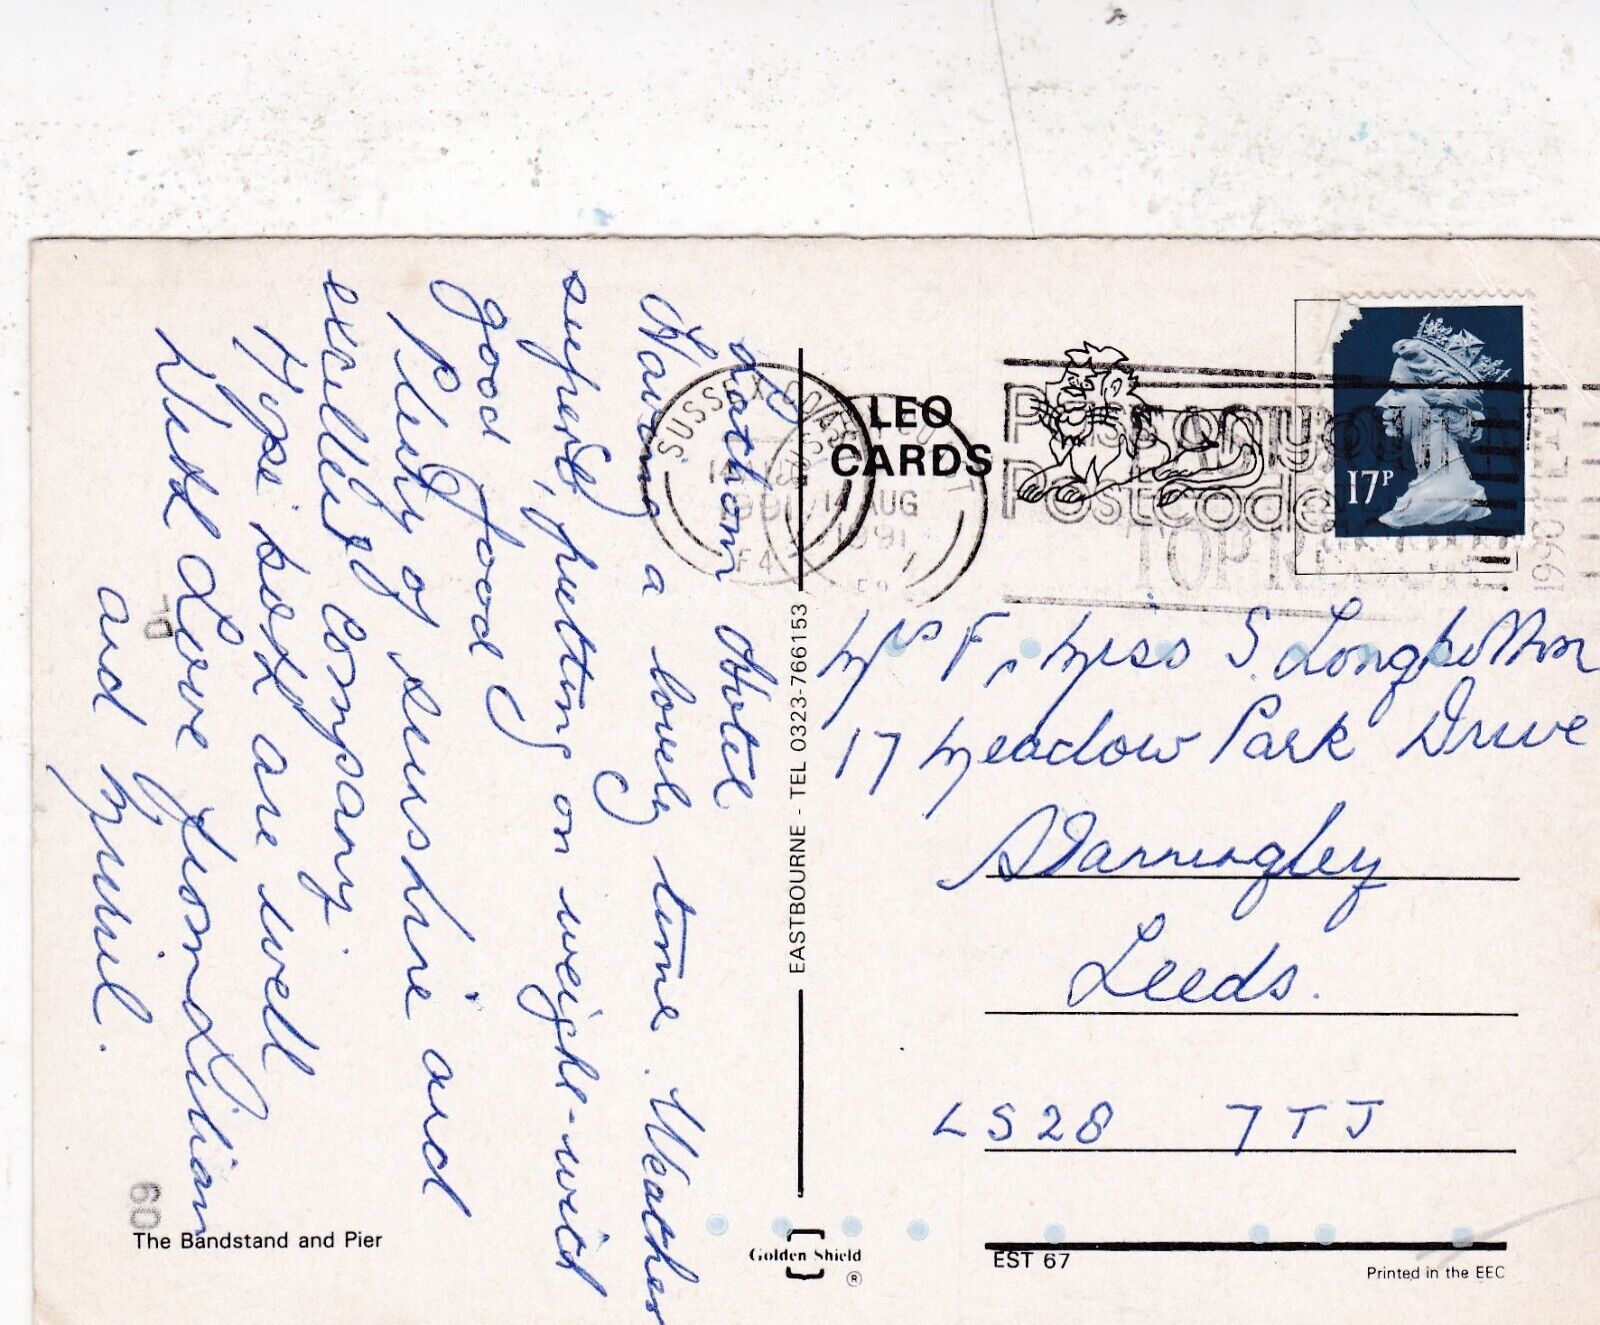 Lathom Hotel
Having a lovely time. Weather
superb, putting on weight - wild
good food
Plenty of sunshine and
excellent company.
Hope both are well
With Love from Lilian
and Muriel.
The Bandstand and Pier
60
EASTBOURNE - TEL 0323-766153
LEO
CARDS
SUSSEX COAST
14 AUG
1991
Pass on your
Postcode
17P
Mrs F, Miss S. Longbottom
17 Meadow Park Drive
Stanningley
Leeds.
LS28 7TJ
Golden Shield
®
EST 67
Printed in the EEC